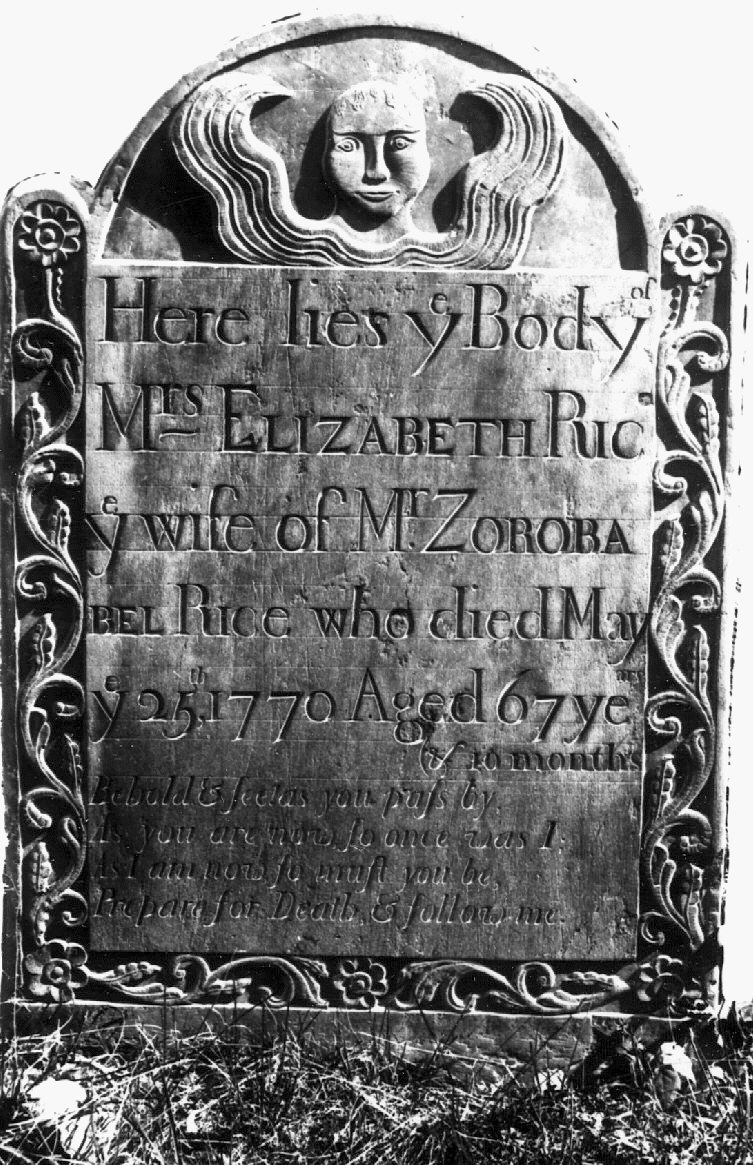 Here lies yᵉ Body oᶠ
Mʳˢ ELIZABETH RICᵉ
yᵉ wiſe of Mʳ. ZOROBA
BEL RICE who died May
yᵉ 25ᵗʰ, 1770 Aged 67 yeᵃʳˢ
& 10 months
Behold & ſee as you paſs by,
As you are now ſo once was I;
As I am now ſo muſt you be,
Prepare for Death, & follow me.